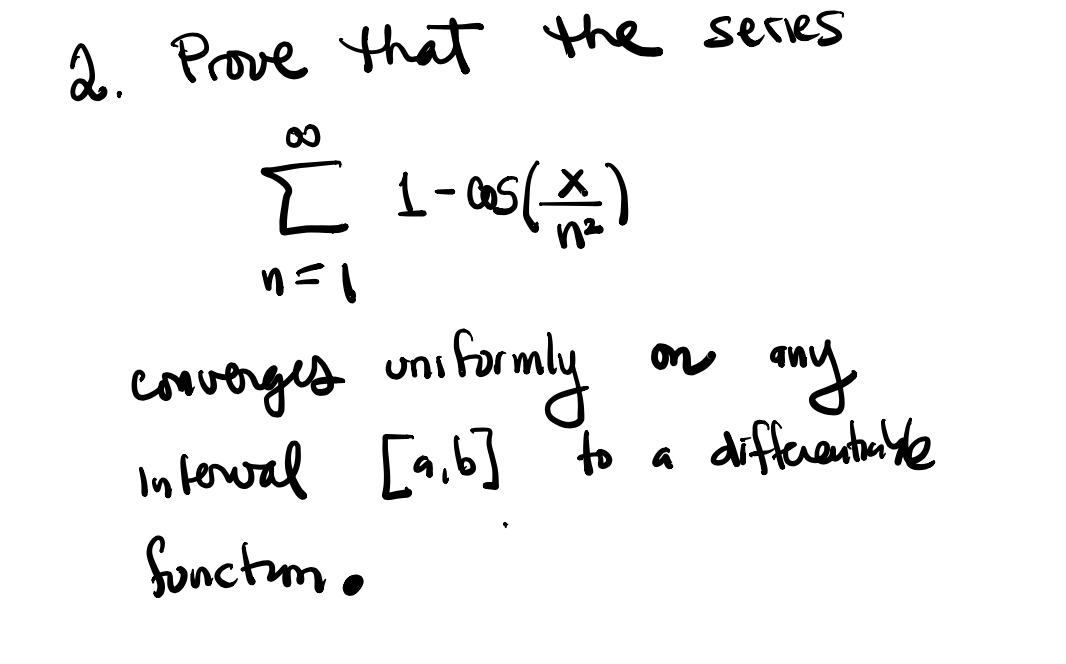 2. Prove that the series
∞
∑ 1 - cos(x/n²)
n = 1
converges uniformly on any
interval [a,b] to a differentiable
function.